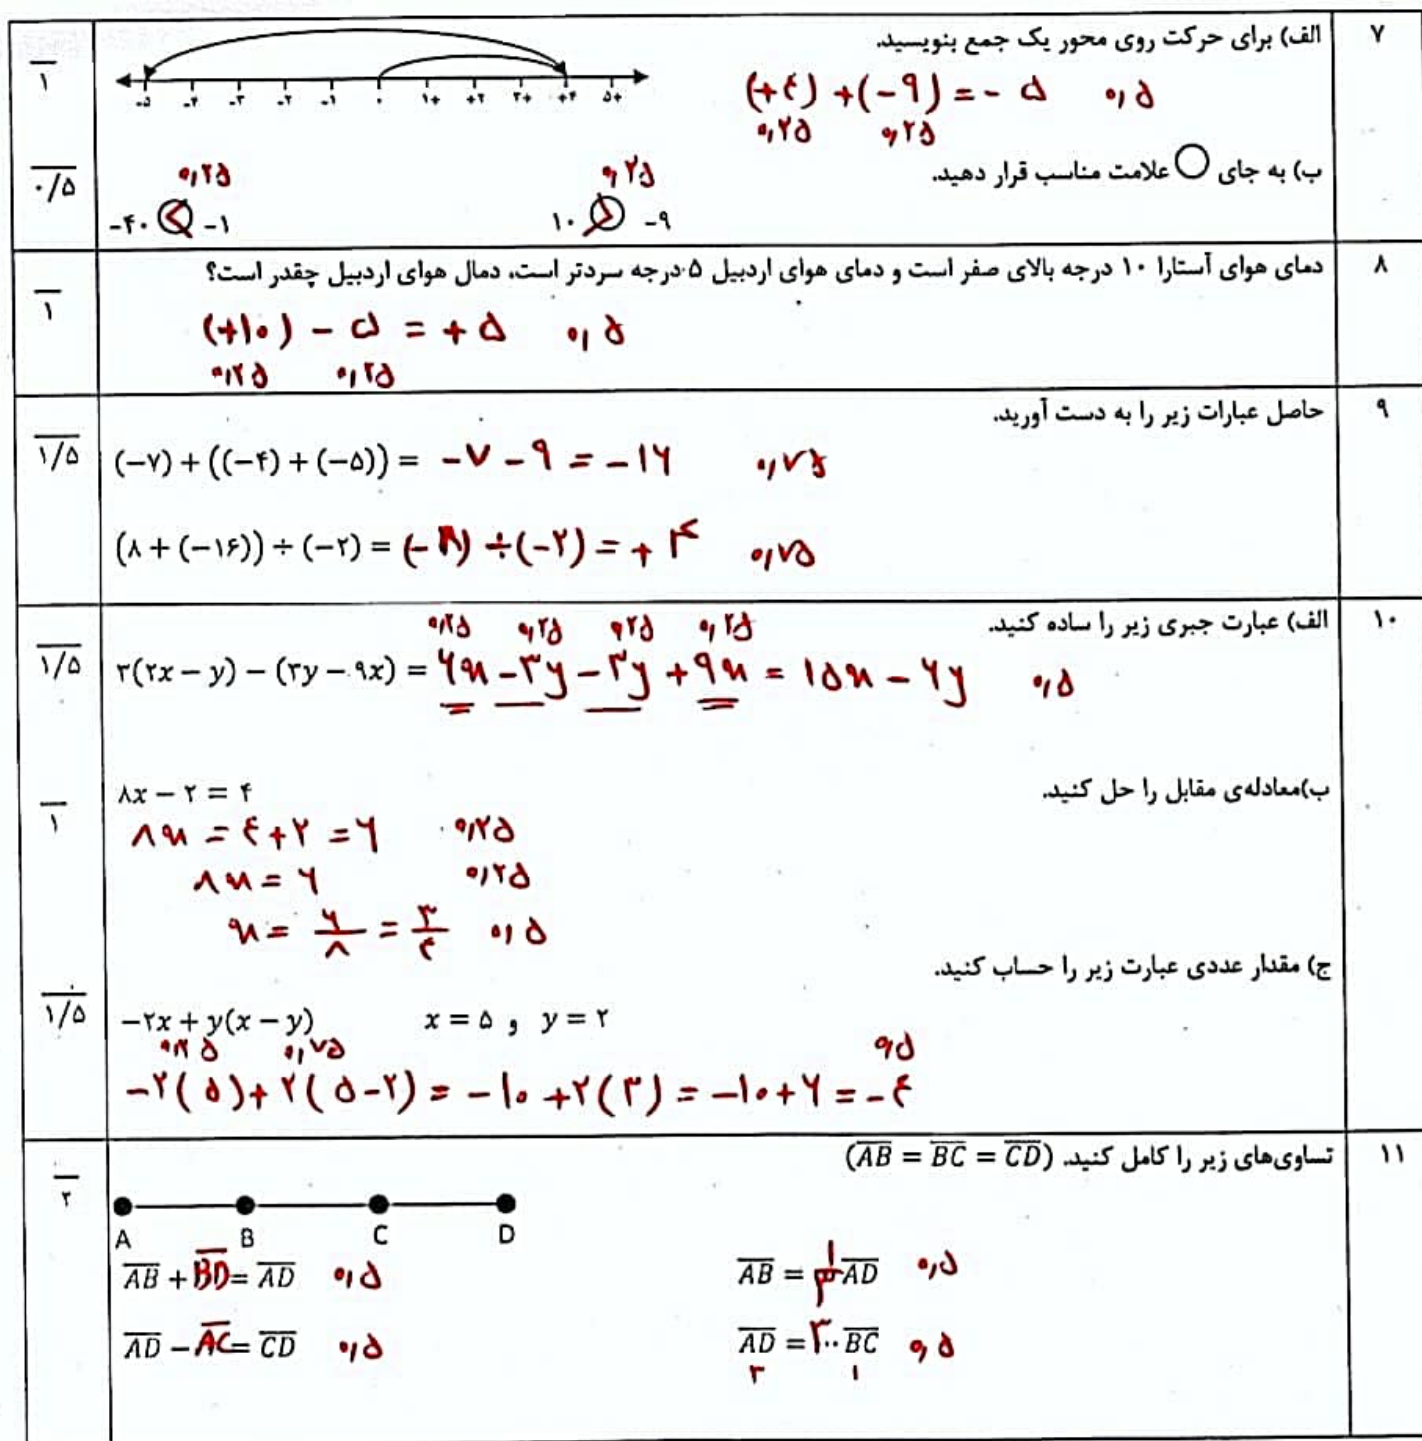 ۷
الف) برای حرکت روی محور یک جمع بنویسید.
۱
-۵ -۴ -۳ -۲ -۱ ۰ ۱+ +۲ ۳+ +۴ ۵+
(+۴) + (-۹) = - ۵ ۰,۵
۰,۲۵ ۰,۲۵
ب) به جای ○ علامت مناسب قرار دهید.
۰/۵
۰,۲۵ ۰,۲۵
-۴۰ < -۱ ۱۰ > -۹
۸
دمای هوای آستارا ۱۰ درجه بالای صفر است و دمای هوای اردبیل ۵ درجه سردتر است، دمال هوای اردبیل چقدر است؟
۱
(+۱۰) - ۵ = + ۵ ۰,۵
۰,۲۵ ۰,۲۵
۹
حاصل عبارات زیر را به دست آورید.
۱/۵
(-۷) + ((-۴) + (-۵)) = -۷ - ۹ = -۱۶ ۰,۷۵
(۸ + (-۱۶)) ÷ (-۲) = (-۸) ÷ (-۲) = + ۴ ۰,۷۵
۱۰
الف) عبارت جبری زیر را ساده کنید.
۰,۲۵ ۰,۲۵ ۰,۲۵ ۰,۲۵
۱/۵
۳(۲x - y) - (۳y - ۹x) = ۶x - ۳y - ۳y + ۹x = ۱۵x - ۶y ۰,۵
ب)معادله‌ی مقابل را حل کنید.
۱
۸x - ۲ = ۴
۸x = ۴ + ۲ = ۶ ۰,۲۵
۸x = ۶ ۰,۲۵
x = ۶/۸ = ۳/۴ ۰,۵
ج) مقدار عددی عبارت زیر را حساب کنید.
۱/۵
-۲x + y(x - y) x = ۵ و y = ۲
۰,۲۵ ۰,۷۵ ۰,۵
-۲(۵) + ۲(۵-۲) = -۱۰ + ۲(۳) = -۱۰ + ۶ = -۴
۱۱
تساوی‌های زیر را کامل کنید. (AB = BC = CD)
۲
A B C D
AB + BD = AD ۰,۵ AB = ۱/۳ AD ۰,۵
AD - AC = CD ۰,۵ AD = ۳.. BC ۰,۵
۳ ۱